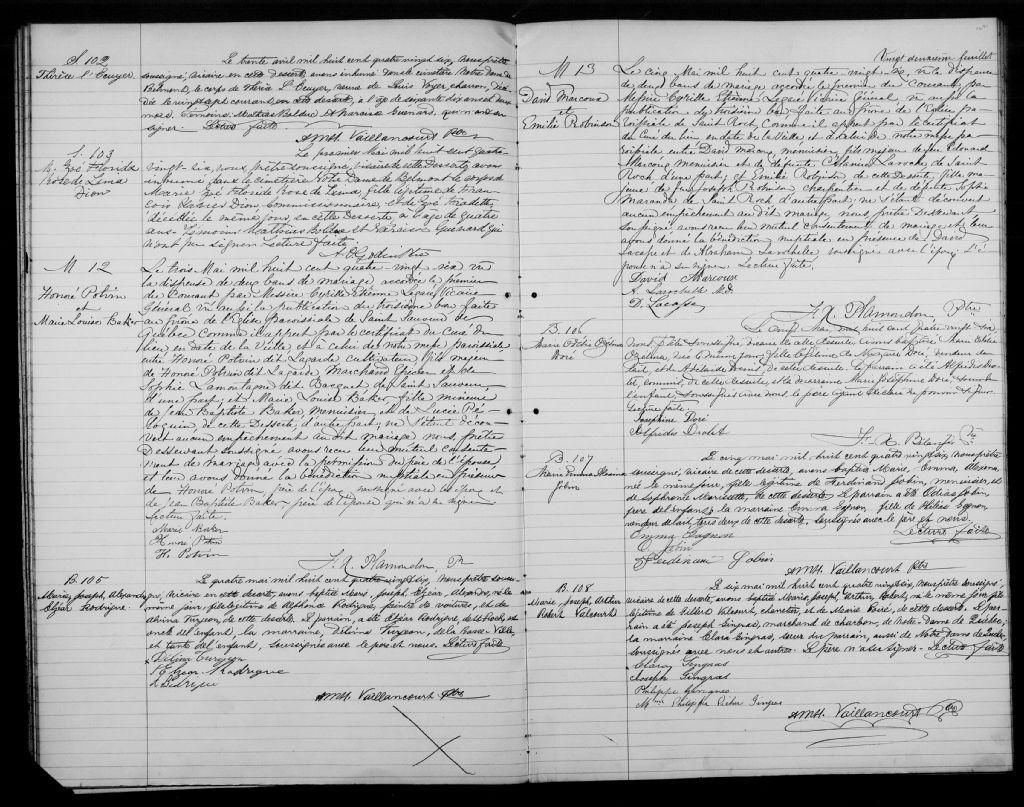 S 102
Thérèse l'Ecuyer
Le trente avril mil huit cent quatre vingt six, nous prêtre
soussigné, vicaire en cette desserte, avons inhumé dans le cimetière Notre Dame de
Belmont, le corps de Thérèse L'Ecuyer, veuve de Louis Voyer, charron, décé-
dée le vingt sept courant, en cette desserte, à l'âge de soixante six ans et deux
mois. Témoins: Mathias Bolduc et Zaraise Guénard, qui n'ont su
signer. Lecture faite.
AMH. Vaillancourt Ptre
S. 103
M. Zoé Florida
Rose de Lima
Dion
Le premier Mai mil huit cent quatre-
vingt-six, nous, prêtre soussigné, vicaire de cette Desserte, avons
inhumé dans le cimetière Notre Dame de Belmont le corps de
Marie Zoé Floride Rose de Lima, fille légitime de Fran-
çois Dion, Commissionnaire, et de Zoé
décédée le même jour, en cette Desserte, à l'âge de quatre
ans. Témoins Mathias Bolduc et Zaraise Guénard qui
n'ont pu signer. Lecture faite.
Godin Ptre
M 12
Honoré Potvin
et
Marie Louise Baker
Le trois Mai mil huit cent quatre vingt six vu
la dispense de deux bans de mariage accordée le premier
du Courant par Messire Cyrille Etienne Légaré, Vicaire
Général vu aussi la publication du troisième ban faite
au prône de l'Eglise paroissiale de Saint Sauveur de
Québec Comme il appert par le certificat du Curé du
lieu en date de la Veille et à celui de notre messe paroissiale
entre Honoré Potvin dit Lagarde, cultivateur, fils majeur
de Honoré Potvin dit Lagarde, Marchand Epicier et de
Sophie Lamontagne dit Bacquet de Saint Sauveur,
d'une part; et Marie Louise Baker, fille mineure
de Jean Baptiste Baker, Menuisier, et de Lucie Pé-
loquin, de cette Desserte, d'autre part; ne s'étant décou-
vert aucun empêchement au dit mariage nous, prêtre
Desservant soussigné avons reçu leur mutuel consente-
ment de mariage avec la permission du père de l'épouse,
et leur avons donné la bénédiction nuptiale en présence
de Honoré Potvin, père de l'époux soussigné avec les époux et
de Jean Baptiste Baker, père de l'épouse qui n'a su signer.
Lecture faite.
Marie Baker
Honoré Potvin
H. Potvin
F. X. Plamondon, Pr
B. 105
Marie, Joseph, Alexandre
Elzéar Rodrigue.
Le quatre mai mil huit cent quatre vingt six, nous prêtre sous-
signé, vicaire en cette desserte, avons baptisé Marie, Joseph, Elzéar, Alexandre, né le
même jour, fils légitime de Alphonse Rodrigue, peintre de voitures, et de
Turgeon, de cette desserte. Le parrain, a été Elzéar Rodrigue, de St Roch,
oncle de l'enfant, la marraine, Délina Turgeon, de la Basse-Ville,
et tante de l'enfant, soussignés avec le père et nous. Lecture faite
Délina Turgeon
Elzéar Rodrigue
A Rodrigue
AMH. Vaillancourt Ptre
Vingt deuxième feuillet
M 13
David Marcoux
et
Emilie Robinson
Le cinq Mai mil huit cent quatre-vingt-six, vu la dispense
de deux bans de mariage accordée le premier du Courant, par
Messire Cyrille Etienne Légaré Vicaire Général vu aussi la
publication du troisième ban faite au prône de l'Eglise pa-
roissiale de Saint Roch Comme il appert par le Certificat
du Curé du lieu en date de la Veille et à celui de notre messe pa-
roissiale entre David Marcoux, menuisier, fils majeur de feu Edouard
Marcoux Menuisier et de défunte Catherine Laroche de Saint
Roch d'une part; et Emilie Robinson de cette Desserte, fille ma-
jeure de feu Joseph Robinson charpentier et de défunte Sophie
Maranda de Saint Roch d'autre part; ne s'étant découvert
aucun empêchement au dit mariage nous, prêtre Desservant
soussigné avons reçu leur mutuel consentement de mariage et leur
avons donné la bénédiction nuptiale en présence de David
Lacasse et de Abraham Larochelle soussignés avec l'époux. L'é-
pouse n'a su signer. Lecture faite.
David Marcoux
A. Larochelle
D. Lacasse
F. X. Plamondon, Ptre
B. 106
Marie Odélie Ozélina
Doré
Le cinq mai mil huit cent quatre vingt six
nous prêtre soussigné, vicaire de cette desserte avons baptisé Marie Odélie
Ozélina, née le même jour, fille légitime de Doré,
et de Adelaïde, de cette desserte. Le parrain a été Alfred Dro-
let, commis, de cette desserte, et la marraine Marie Joséphine Doré, soeur de
l'enfant, soussignés avec nous, le père ayant déclaré ne pouvoir signer.
Lecture faite.
Josephine Doré
Alfred Drolet
F. X. Ptre
B. 107
Marie Emma Alexina
Jobin
Le cinq mai mil huit cent quatre vingt six, nous prêtre
soussigné, vicaire de cette desserte, avons baptisé Marie, Emma, Alexina,
née le même jour, fille légitime de Ferdinand Jobin, menuisier, et
de Sophronie Marcotte, de cette desserte. Le parrain a été Odias Jobin,
frère de l'enfant; la marraine Emma Gagnon, fille de Gagnon,
tous deux de cette desserte, soussignés avec le père et nous.
Lecture faite
Emma Gagnon
O. Jobin
Ferdinand Jobin
AMH. Vaillancourt Ptre
B. 108
Marie, Joseph, Arthur
Robert Valcourt
Le six mai mil huit cent quatre vingt six, nous prêtre soussigné,
vicaire de cette desserte, avons baptisé Marie, Joseph, Arthur, Robert, né le même jour, fils
légitime de Gilbert Valcourt, charretier, et de Marie Rose, de cette desserte. Le par-
rain a été Joseph Gingras, marchand de charbon, de Notre-Dame de Québec;
la marraine Clara Gingras, soeur du parrain, aussi de Notre-Dame de Québec,
soussignés avec nous et autres. Le père n'a su signer. Lecture faite
Clara Gingras
Joseph Gingras
Philippe Gingras
Mme Philippe Picher Gingras
AMH. Vaillancourt Ptre